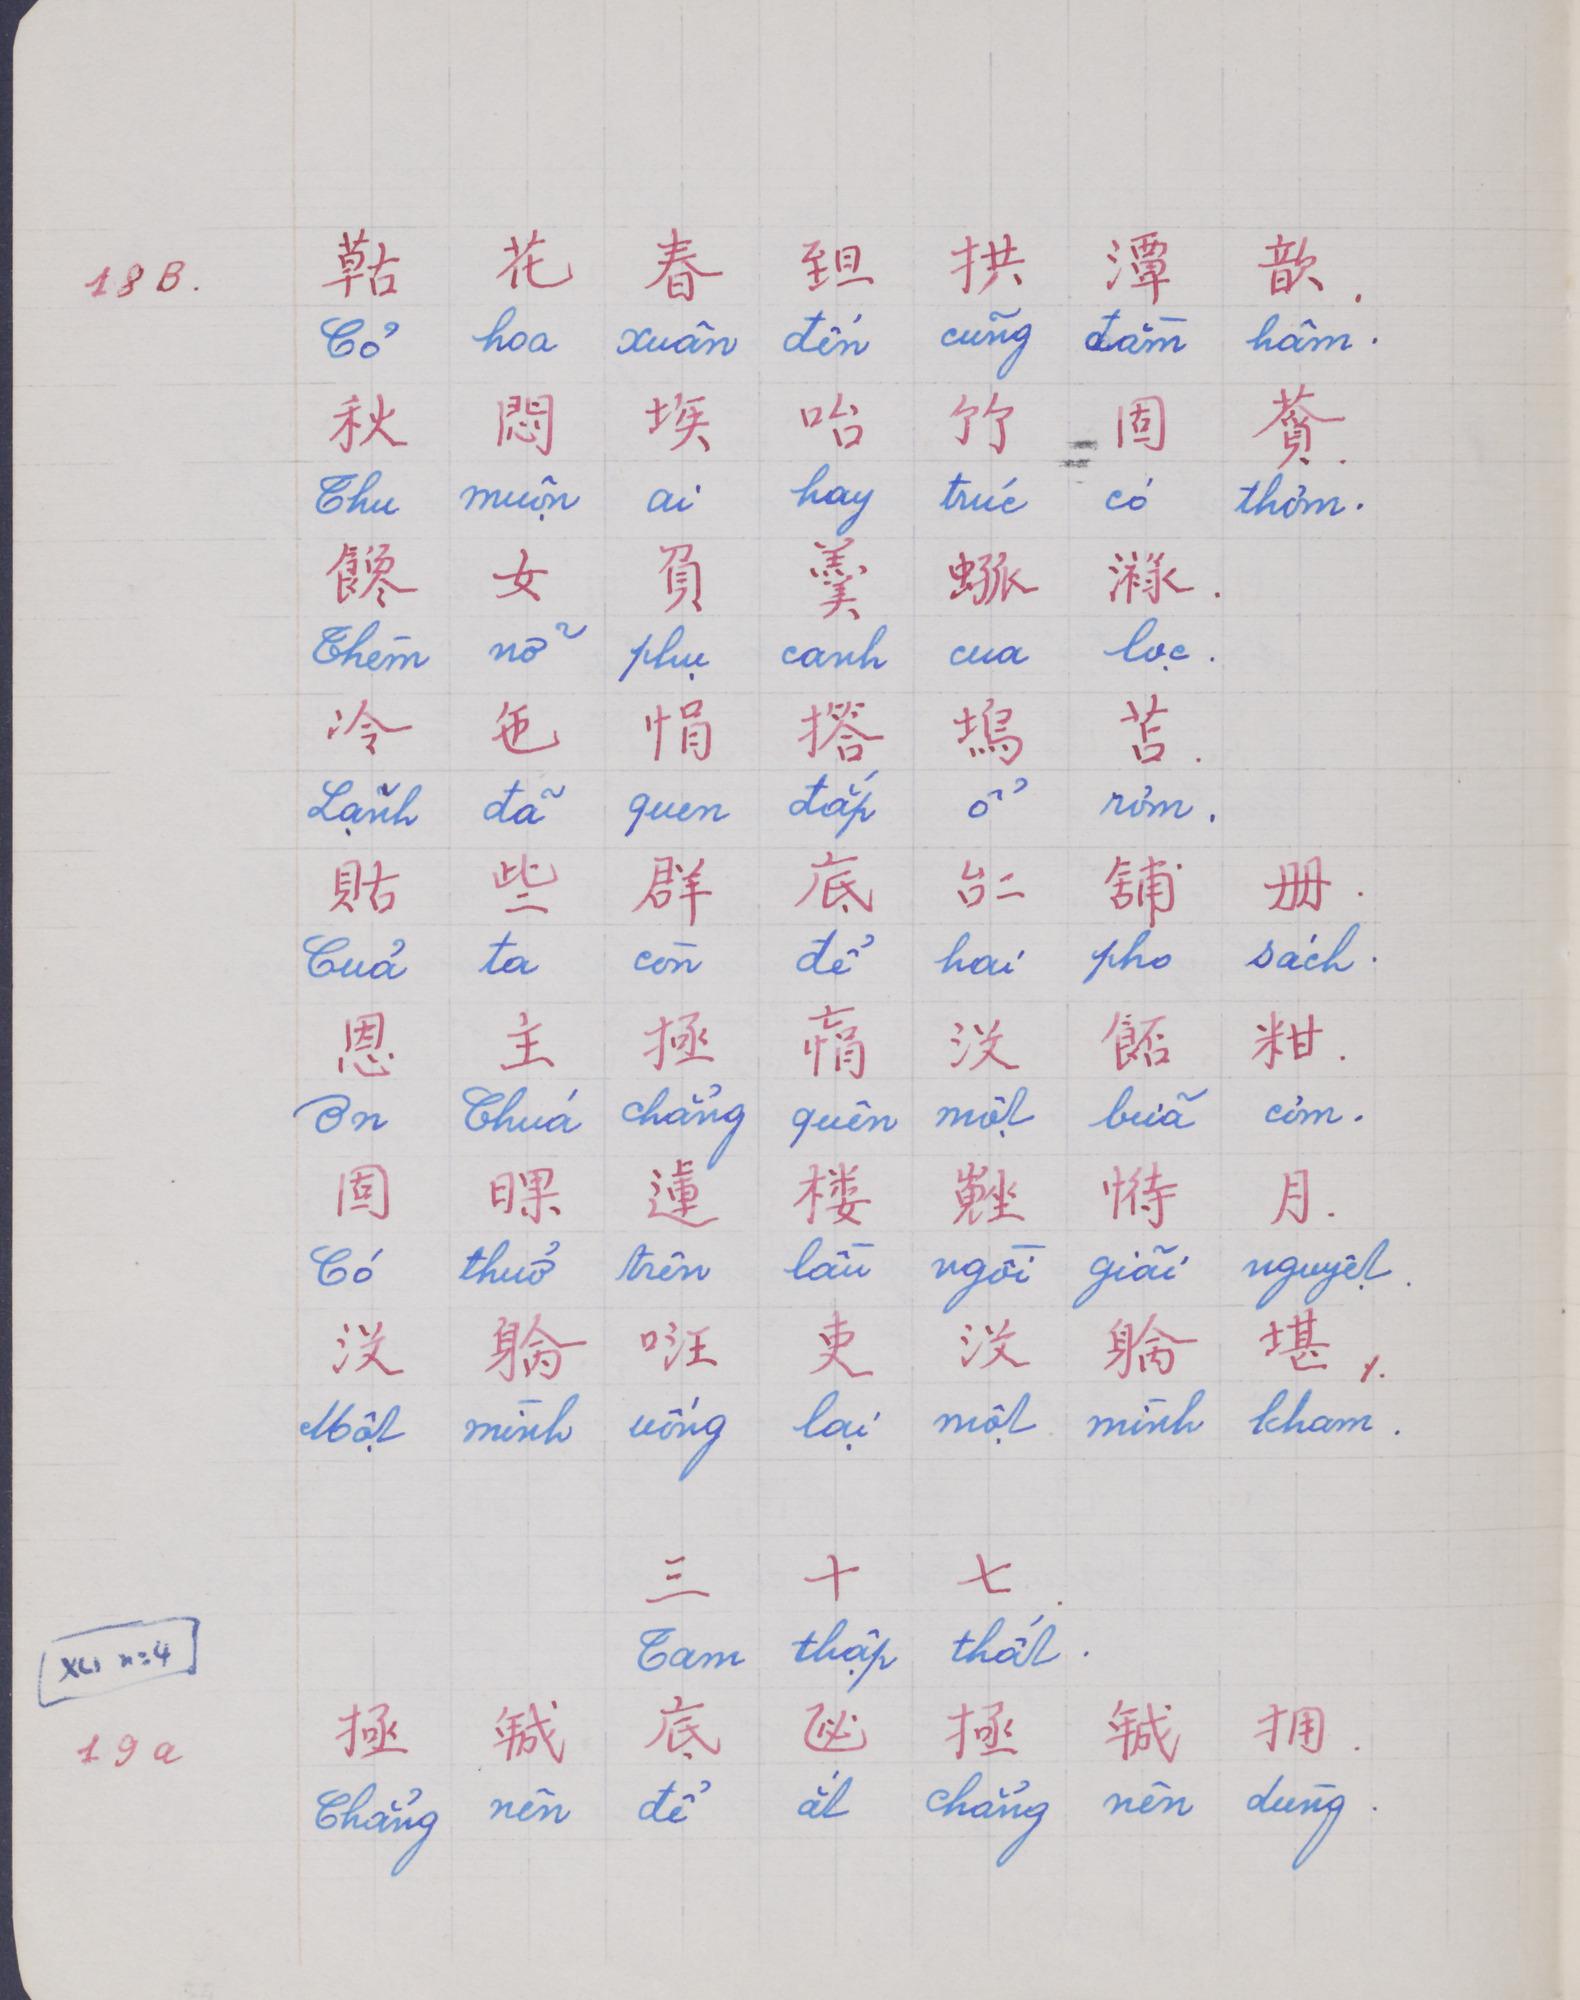 18B. 𦹵 花 春 𦤾 拱 潭 歆.
Cỏ hoa xuân đến cũng đầm hâm.
秋 悶 埃 咍 竹 固 薋.
Thu muộn ai hay trúc có thơm.
饞 女 負 羹 渌.
Thèm nỡ phụ canh cua lọc.
冷 㐌 悁 搭 塢 苫.
Lạnh đã quen đắp ổ rơm.
貼 些 群 底 𠄩 舖 册.
Của ta còn để hai pho sách.
恩 主 拯 𢞂 没 𩛷 粓.
Ơn Chúa chẳng quên một bữa cơm.
固 𣇞 蓮 楼 𡎥 㤢 月.
Có thuở trên lầu ngồi giãi nguyệt.
没 𨉓 㕵 吏 没 𨉓 堪 ⁒
Một mình uống lại một mình kham.
三 十 七.
Tam thập thất.
19a 拯 𢧚 底 拯 𢧚 拥.
Chẳng nên để ắt chẳng nên dùng.